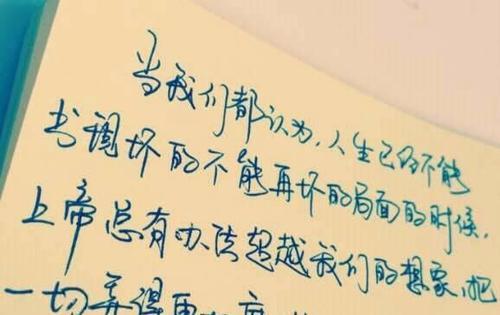 当我们都认为，人生已经不能
出现坏的不能再坏的局面的时候，
上帝总有办法超越我们的想象，把
一切弄得更